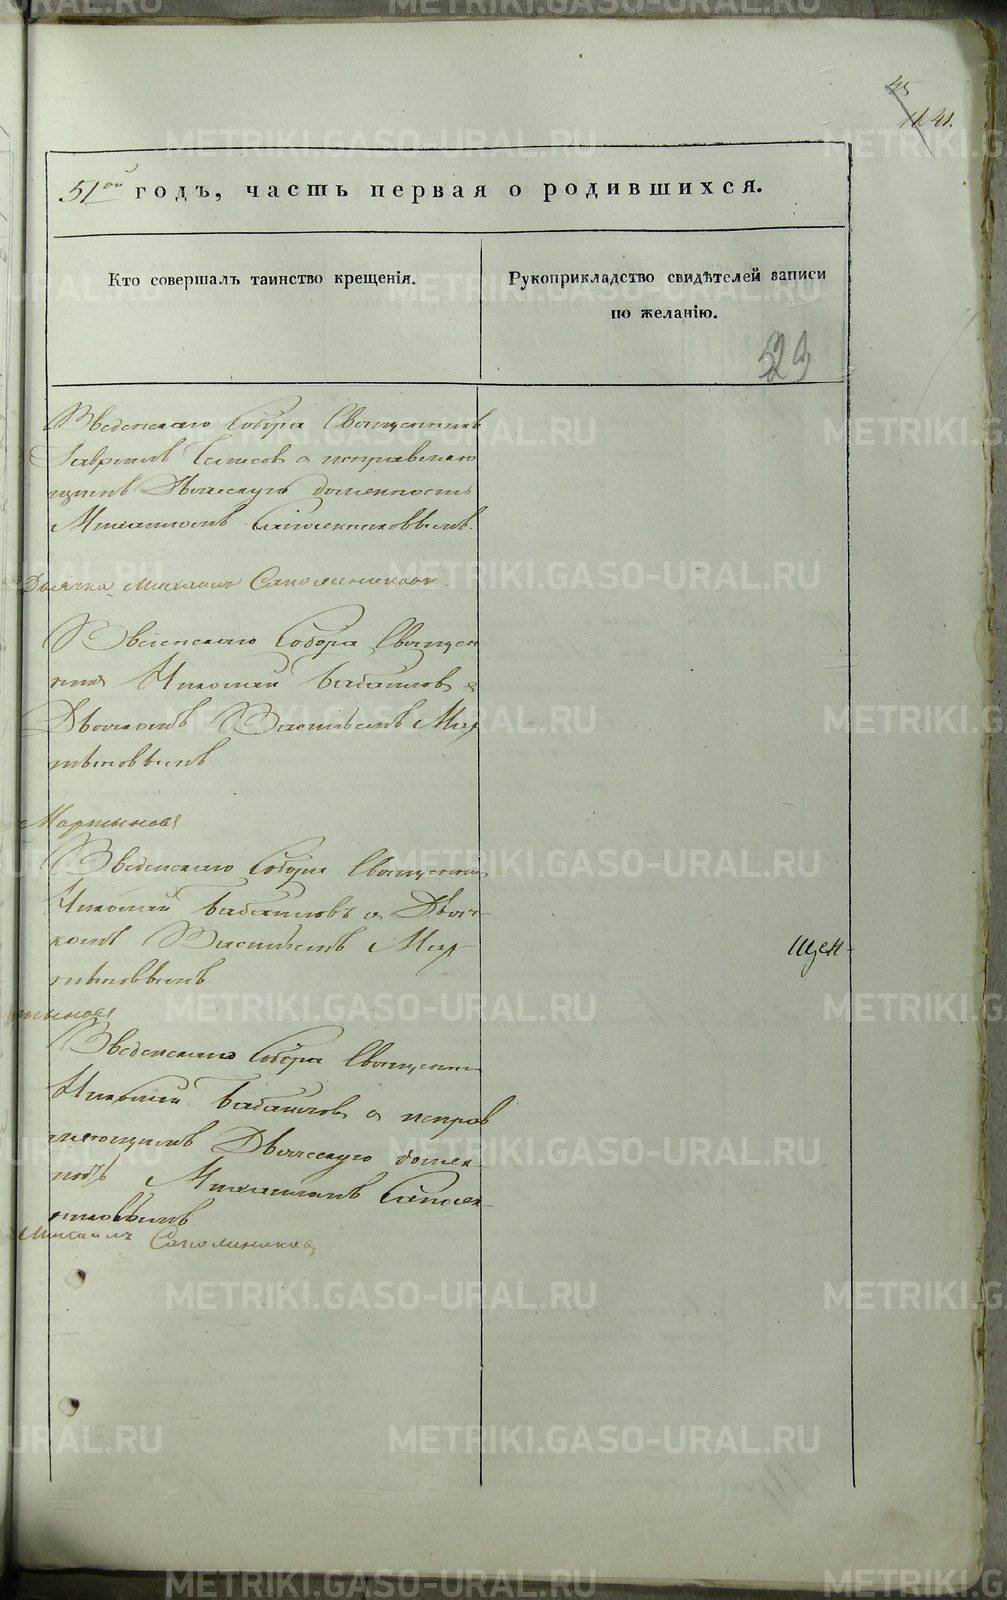 45
41.
51ой годъ, часть первая о родившихся.
Кто совершалъ таинство крещенія.
Рукоприкладство свидѣтелей записи
по желанію.
529
Введенскаго Собора Священникъ
Гавріилъ и исправляю
щимъ Дьяческую должность
Михаиломъ Сапожниковымъ.
Михаилъ Сапожниковъ
Введенскаго Собора Священ
никъ Николай Бабаиловъ и
Дьячкомъ Василіемъ Мар
тыновымъ
Мартыновъ
Введенскаго Собора Священни
Николай Бабаиловъ и Дьяч-
комъ Василіемъ Мар-
тыновымъ
тыновъ
Введенскаго Собора Священни
Николай Бабаиловъ и исправ
ляющимъ Дьяческую должн
Михаиломъ Сапожн
никовымъ
Михаилъ Сапожниковъ
щен-
METRIKI.GASO-URAL.RU